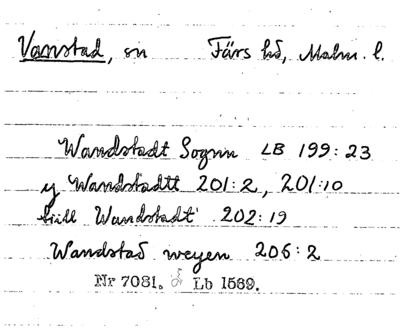 Vanstad, sn Färs hd, Malm. l.
Wandstadt Sognn LB 199:23
y Wandstadtt 201:2, 201:10
till Wandstadt 202:19
Wandstad weyen 206:2
Nr 7081. Lb 1569.